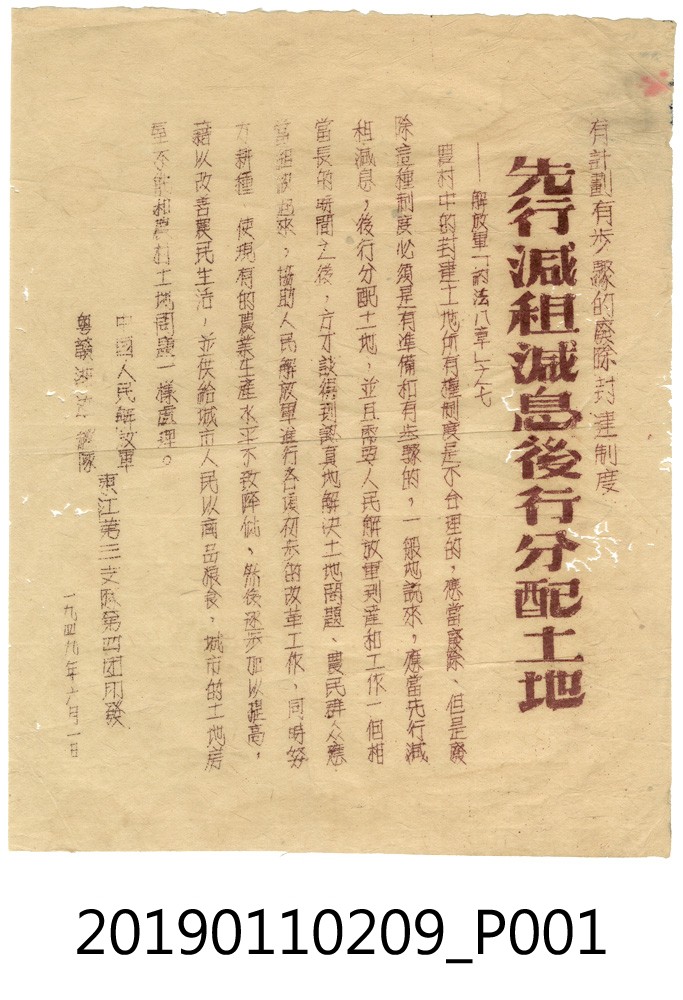 有計劃有步驟的廢除封建制度
先行減租減息後行分配土地
——解放軍「約法八章」之七
農村中的封建土地所有權制度是不合理的，應當廢除、但是廢
除這種制度必須是有準備和有步驟的，一般地說來，應當先行減
租減息，後行分配土地，並且需要人民解放軍到達和工作一個相
當長的時間之後，方才談得到認真地解決土地問題、農民群众應
當組織起來，協助人民解放軍進行各項初步的改革工作，同時努
力耕種 使現有的農業生產水平不致降低，然後逐步加以提高，
藉以改善農民生活，並供給城市人民以商品粮食，城市的土地房
屋不能和農村土地問題一樣處理。
中國人民解放軍
粵贛湘边縱隊
東江第三支隊第四团印發
一九四九年六月一日
20190110209_P001